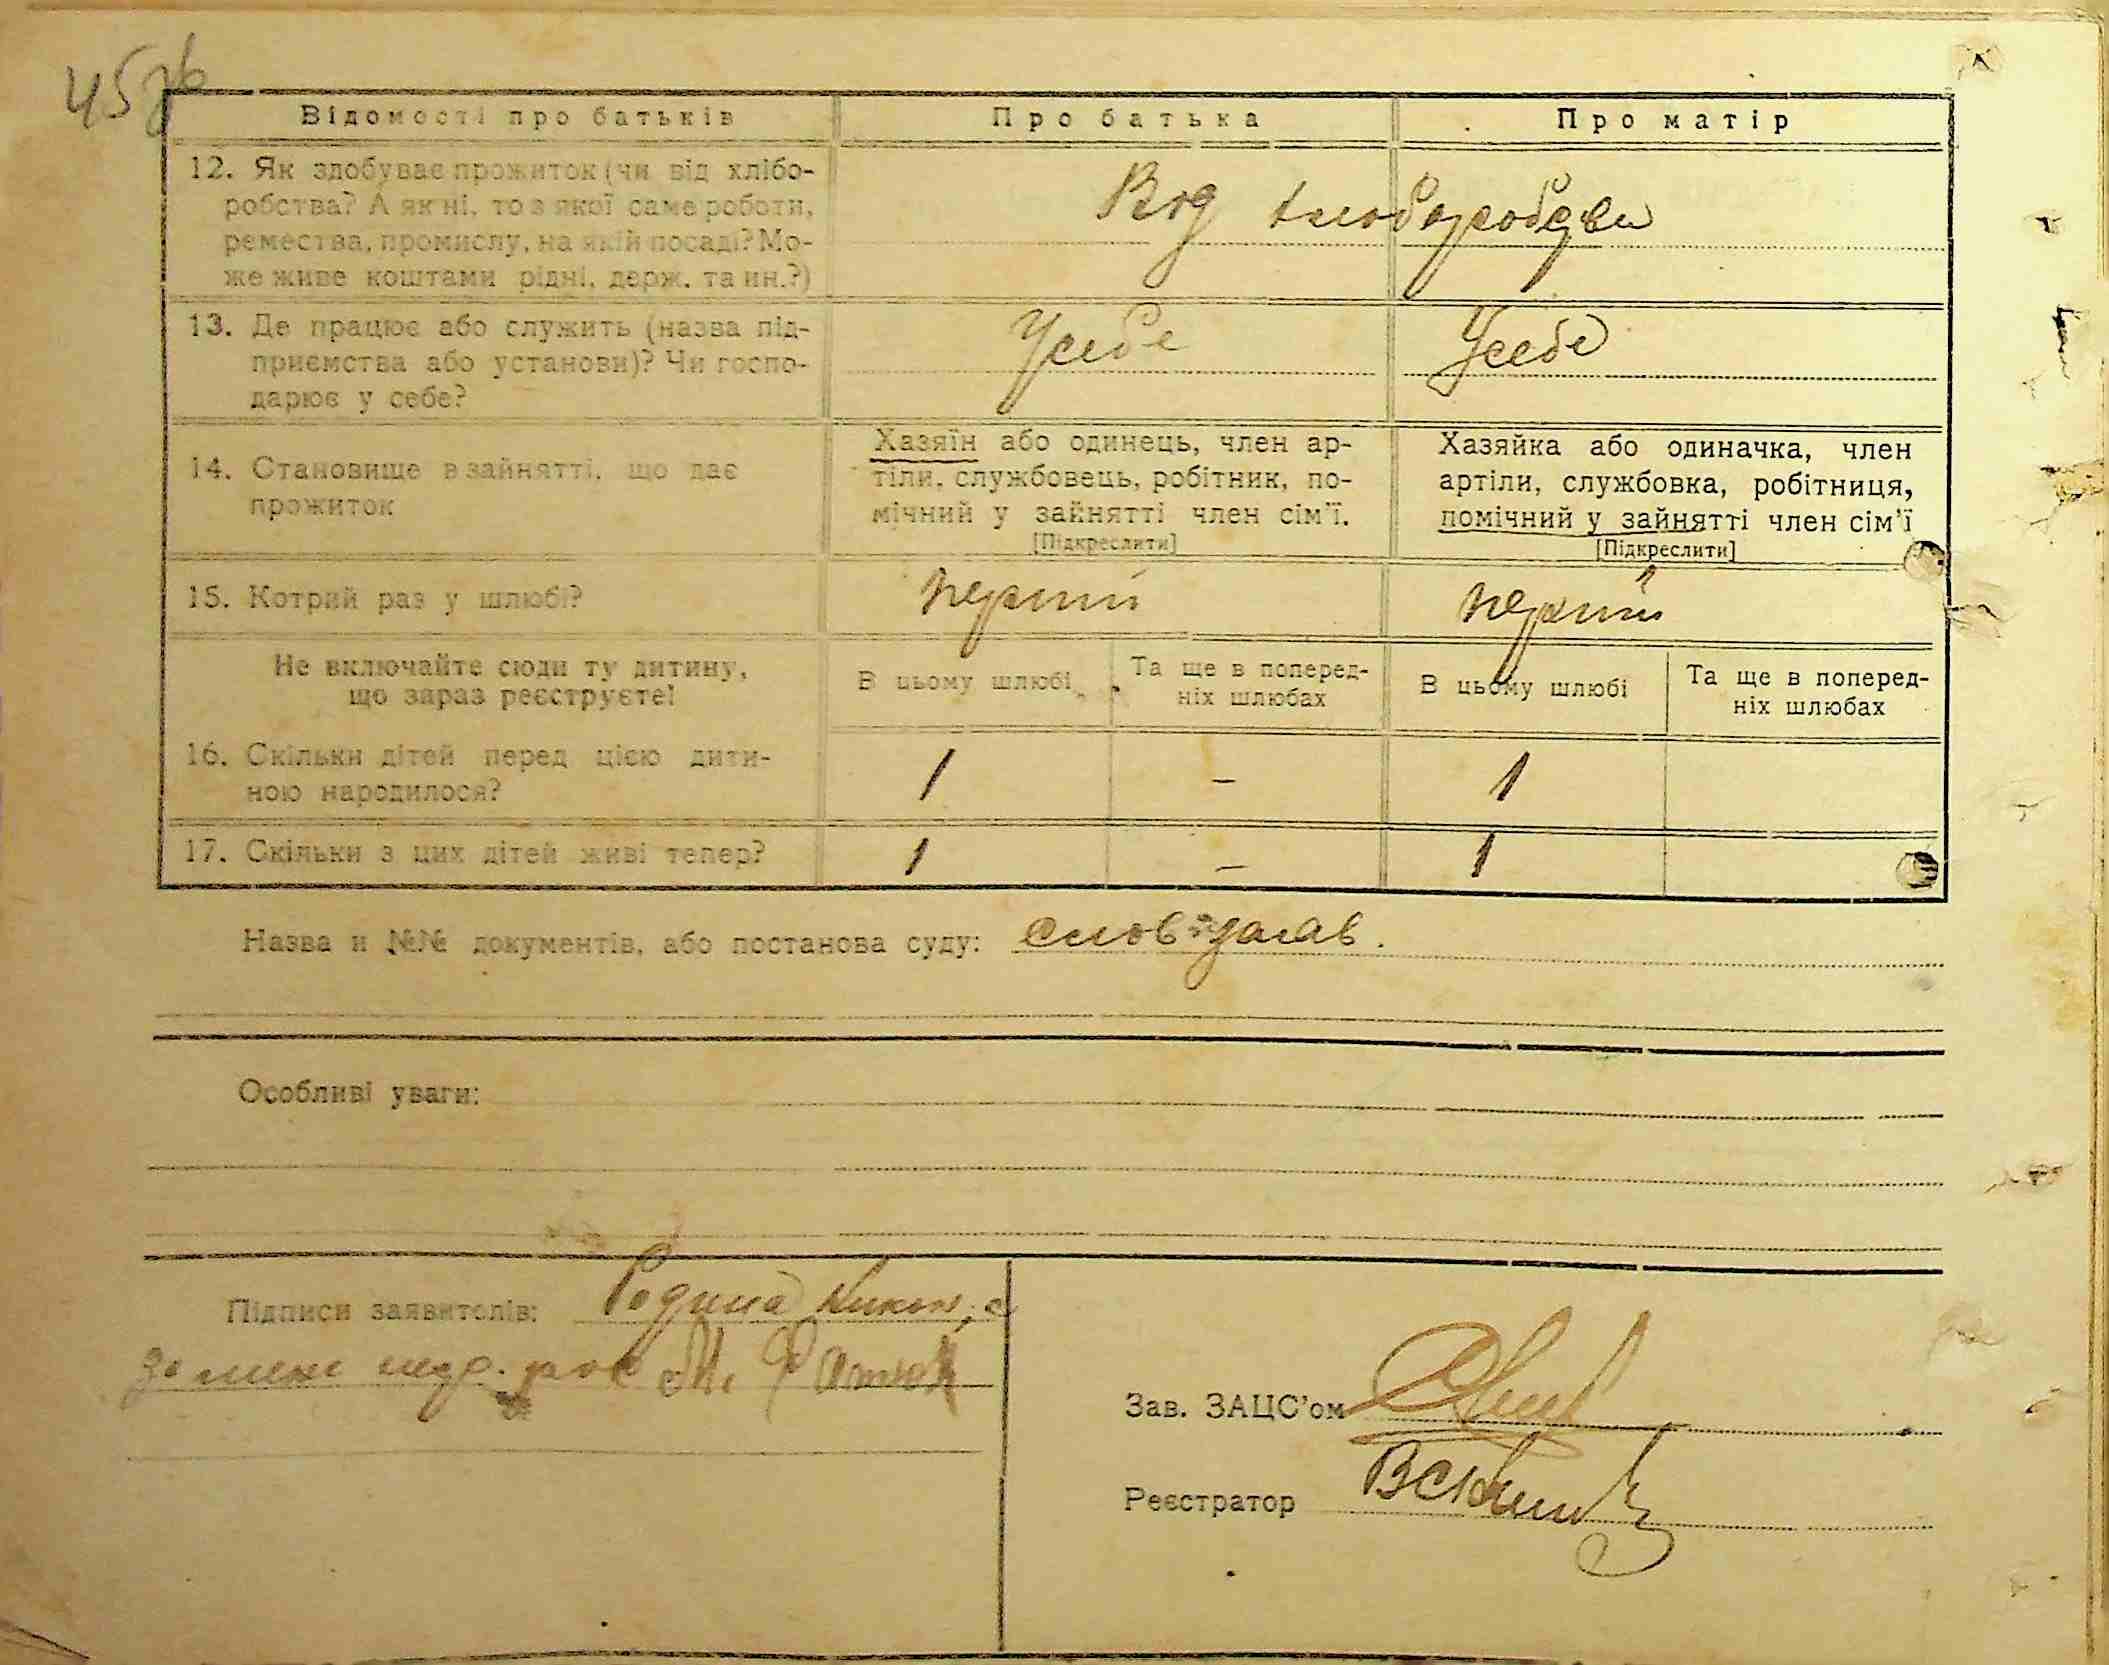 45зв
Відомості про батьків
Про батька
Про матір
12. Як здобуває прожиток (чи від хлібо-
робства? А як ні, то з якої саме роботи,
ремества, промислу, на якій посаді? Мо-
же живе коштами рідні, держ. та ин.?)
Від хліборобства
13. Де працює або служить (назва під-
приємства або установи)? Чи госпо-
дарює у себе?
У себе
У себе
14. Становище в зайнятті, що дає
прожиток
Хазяїн або одинець, член ар-
тіли, службовець, робітник, по-
мічний у зайнятті член сім'ї.
[Підкреслити]
Хазяйка або одиначка, член
артіли, службовка, робітниця,
помічний у зайнятті член сім'ї
[Підкреслити]
15. Котрий раз у шлюбі?
перший
перший
Не включайте сюди ту дитину,
що зараз реєструєте!
В цьому шлюбі
Та ще в поперед-
ніх шлюбах
В цьому шлюбі
Та ще в поперед-
ніх шлюбах
16. Скільки дітей перед цією дити-
ною народилося?
1
-
1
17. Скільки з цих дітей живі тепер?
1
-
1
Назва и №№ документів, або постанова суду:
Особливі уваги:
Підписи заявителів: Родина
Зав. ЗАЦС'ом
Реєстратор